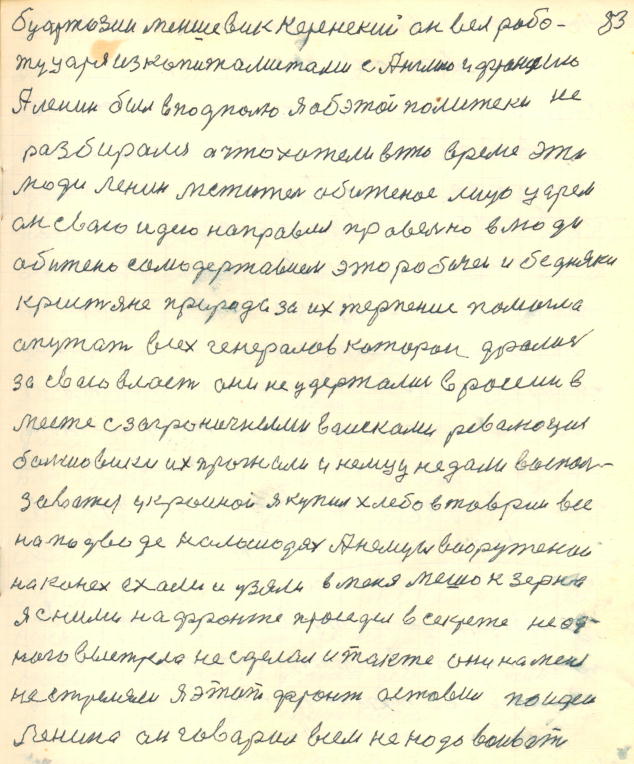 83
буржозии меншевик Керенский он вел рабо-
ту царя из копиталистами с Англию и францею
А ленин был в подполю я об этой политеки не
разбирался а что хотели в то време эти
люди Ленин мститель обиженое лицо царем
он сваю идею направил провелно в люди
обижено самодержавием это робочеи и бедняки
кристяне природа за их терпение помогла
опутат всех генералов которои дролися
за сваю власт они не удержалис в росии в
месте с загроничными воисками революция
болшовики их прогнали и немцу недали воспол-
зоватся украиной я купил хлебо в таврии вез
на подводе на лошодях А немцы вооруженои
на конех ехали и узяли в меня мешок зерна
я с ними на фронте проседел в секрете не од-
ного выстрела не сделал и также они на меня
не стреляли Я этот фронт оставил по идеи
Ленина он говарил всем не нодо воивать